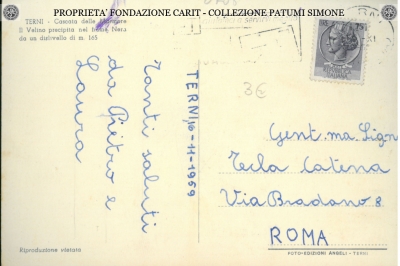 PROPRIETA' FONDAZIONE CARIT - COLLEZIONE PATUMI SIMONE
TERNI - Cascata delle Marmore
Il Velino precipita nel fiume Nera
da un dislivello di m 165
TERNI, 16-11-1959
Tanti saluti
da Pietro e
Laura
3€
Gent.ma Sig.na
Tecla Catena
Via Bradano 8
ROMA
Riproduzione vietata
FOTO-EDIZIONI ANGELI - TERNI